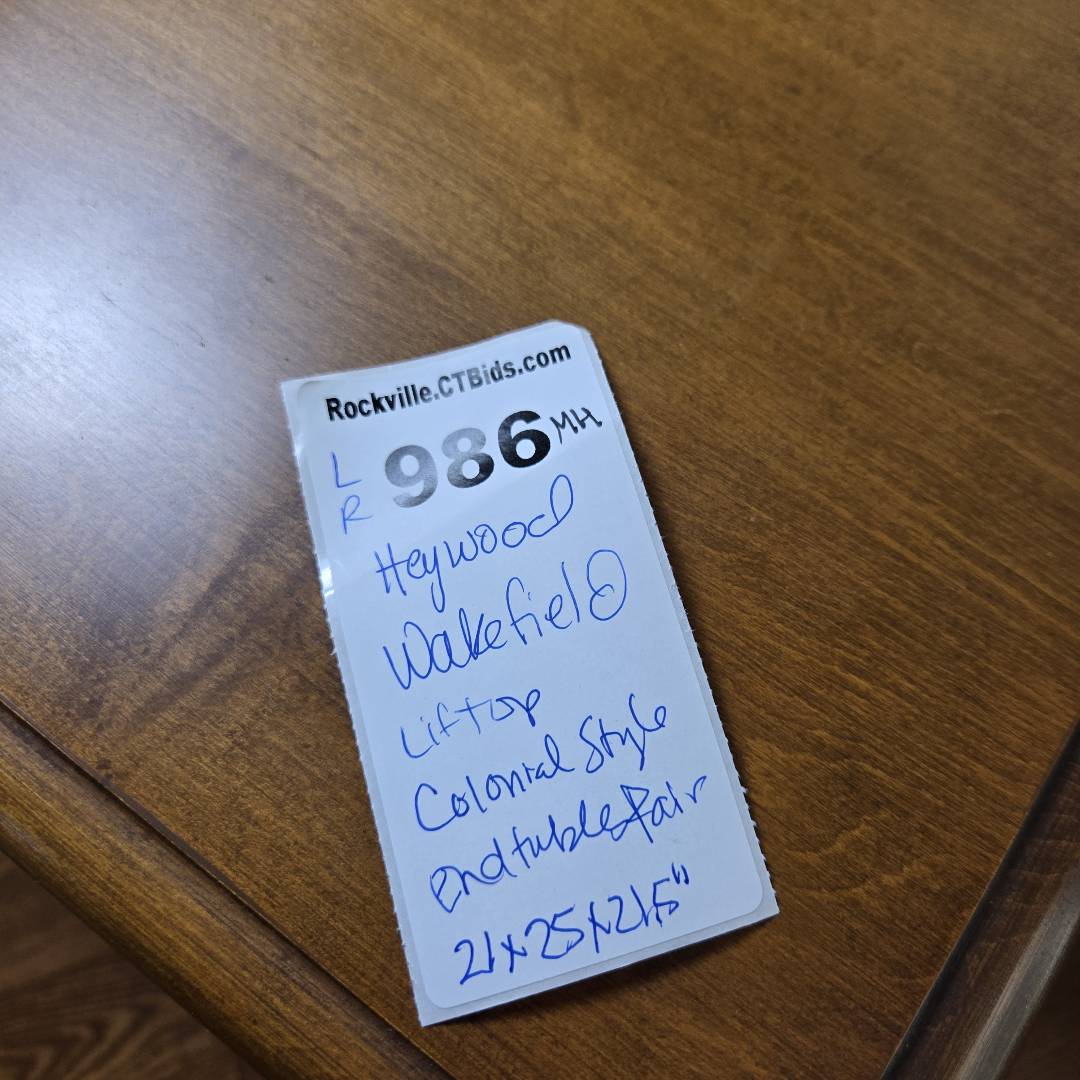 Rockville.CTBids.com
L R 986 MH
Heywood
Wakefield
Liftop
Colonial Style
end tables Pair
21x25x21.5"